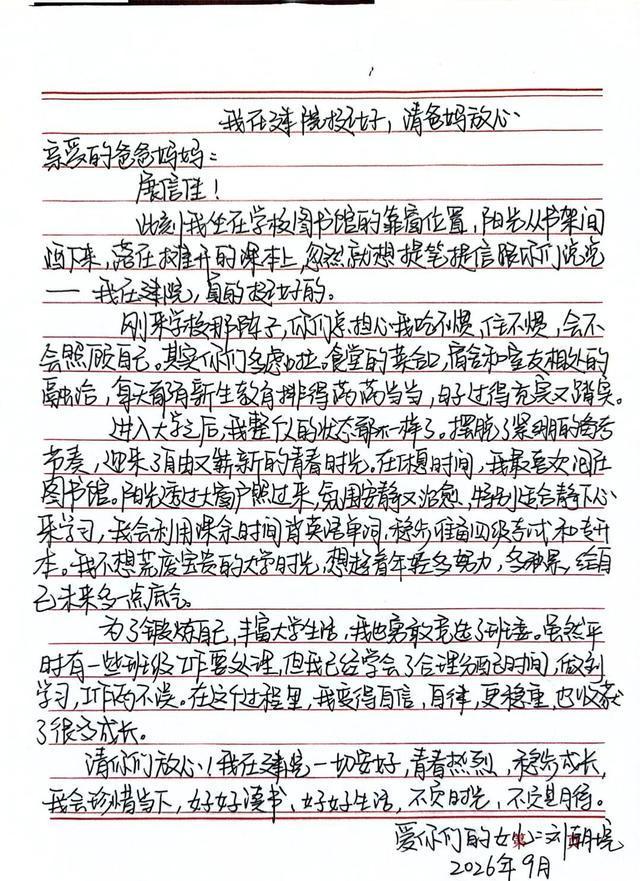 我在建院挺好,请爸妈放心
亲爱的爸爸妈妈:
展信佳!
此刻我坐在学校图书馆的靠窗位置,阳光从书架间
洒下来,落在摊开的课本上,忽然就想提笔提信跟你们说说
——我在建院,真的挺好的。
刚来学校那阵子,你们总担心我吃不惯,住不惯,会不
会照顾自己。其实你们多虑啦。食堂的菜合口,宿舍和室友相处的
融洽,每天都有新生教育排得满满当当,日子过得充实又踏实。
进入大学之后,我整个人的状态都不一样了。摆脱了紧绷的备考
节奏,迎来了自由又崭新的青春时光。在休息时间,我最喜欢泡在
图书馆。阳光透过大窗户照过来,氛围安静又治愈,特别适合静下心
来学习,我会利用课余时间背英语单词,稳步准备四级考试和专升
本。我不想荒废宝贵的大学时光,想趁着年轻多努力,多积累,给自
己未来多一点底气。
为了锻炼自己,丰富大学生活,我也勇敢竞选了班委。虽然平
时有一些班级工作要处理,但我已经学会了合理分配时间,做到
学习,工作两不误。在这个过程里,我变得自信,自律,更稳重,也收获
了很多成长。
请你们放心!我在建院一切安好,青春热烈,稳步成长,
我会珍惜当下,好好读书、好好生活,不负时光,不负期待。
爱你们的女儿:刘
2026年9月